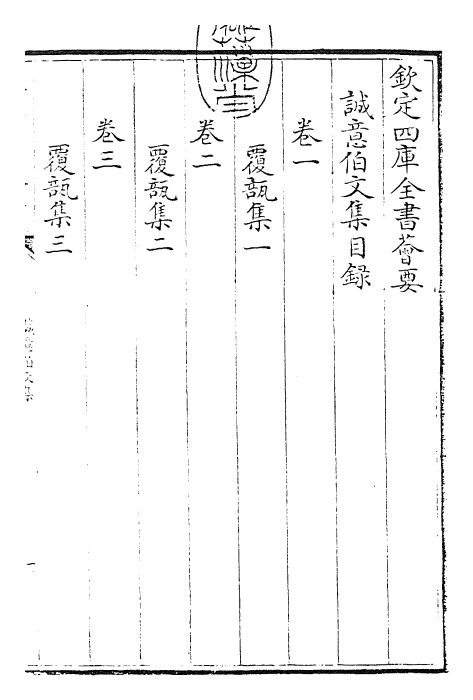 欽定四庫全書薈要
誠意伯文集目録
卷一
覆瓿集一
卷二
覆瓿集二
卷三
覆瓿集三